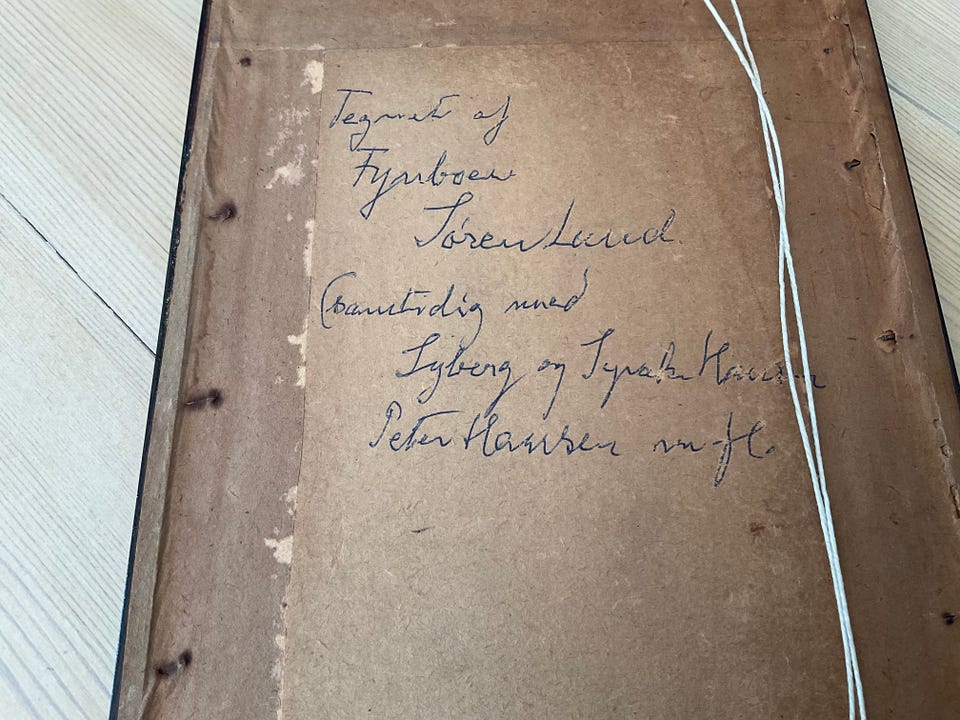 Tegnet af
Fynboen
Søren Lund
(samtidig med
Syberg og Syrak Hansen
Peter Hansen m-fl.